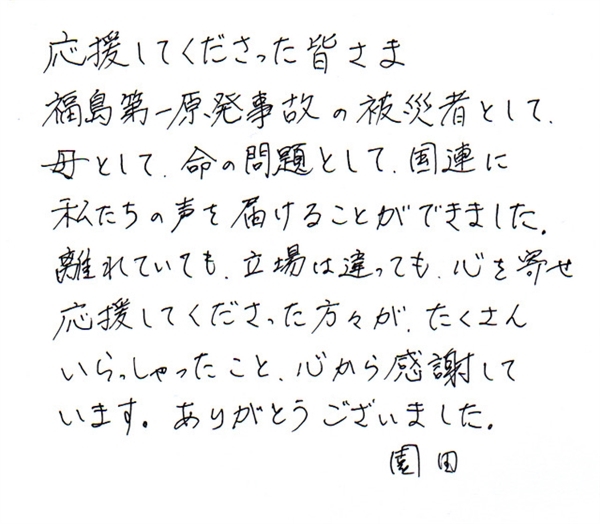 応援してくださった皆さま
福島第一原発事故の被災者として、
母として、命の問題として、国連に
私たちの声を届けることができました。
離れていても、立場は違っても、心を寄せ
応援してくださった方々が、たくさん
いらっしゃったこと、心から感謝して
います。ありがとうございました。
園田